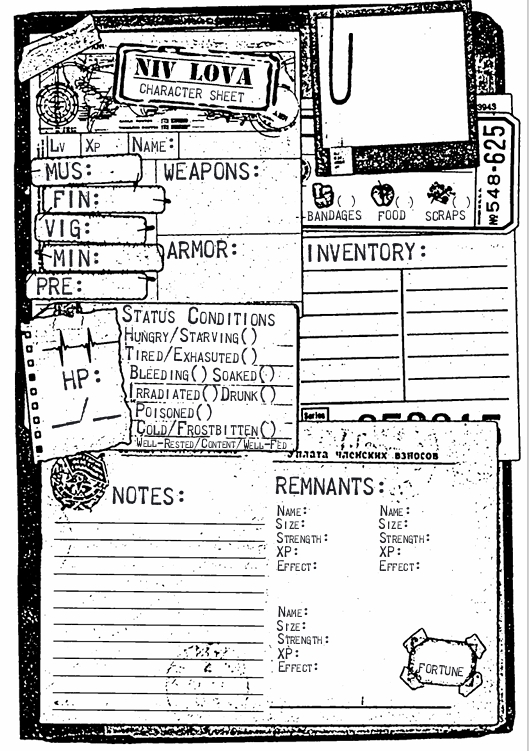 NIV LOVA
CHARACTER SHEET
LV XP NAME:
MUS:
FIN:
VIG:
MIN:
PRE:
WEAPONS:
ARMOR:
3943
№548-625
BANDAGES ( ) FOOD ( ) SCRAPS ( )
INVENTORY:
HP:
STATUS CONDITIONS
HUNGRY/STARVING( )
TIRED/EXHASUTED( )
BLEEDING( ) SOAKED( )
IRRADIATED( ) DRUNK( )
POISONED( )
COLD/FROSTBITTEN( )
WELL-RESTED/CONTENT/WELL-FED
Series
Уплата членских взносов
NOTES:
REMNANTS:
NAME: NAME:
SIZE: SIZE:
STRENGTH: STRENGTH:
XP: XP:
EFFECT: EFFECT:
NAME:
SIZE:
STRENGTH:
XP:
EFFECT:
FORTUNE